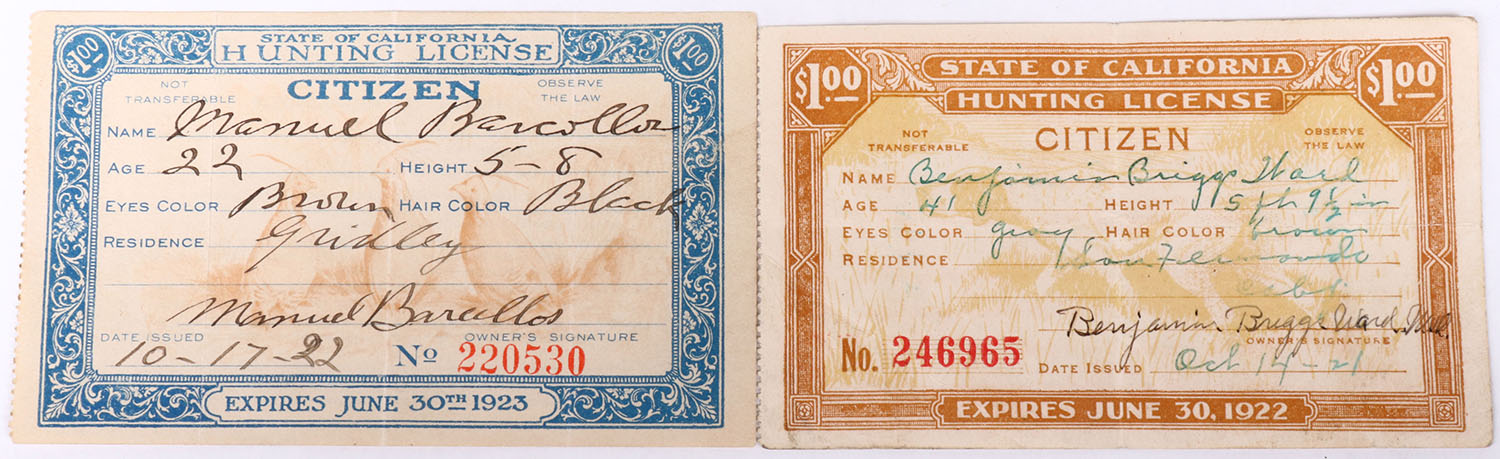 $1.00 STATE OF CALIFORNIA $1.00
HUNTING LICENSE
NOT TRANSFERABLE CITIZEN OBSERVE THE LAW
NAME Manuel Barcellos
AGE 22 HEIGHT 5-8
EYES COLOR Brown HAIR COLOR Black
RESIDENCE Gridley
Manuel Barcellos
DATE ISSUED OWNER'S SIGNATURE
10-17-22 No 220530
EXPIRES JUNE 30TH 1923
$1.00 STATE OF CALIFORNIA $1.00
HUNTING LICENSE
NOT TRANSFERABLE CITIZEN OBSERVE THE LAW
NAME Benjamin Briggs Ward
AGE 41 HEIGHT 5 ft 9 1/2 in
EYES COLOR gray HAIR COLOR brown
RESIDENCE San Fernando
Benjamin Briggs Ward
OWNER'S SIGNATURE
No. 246965 DATE ISSUED Oct 14-21
EXPIRES JUNE 30, 1922